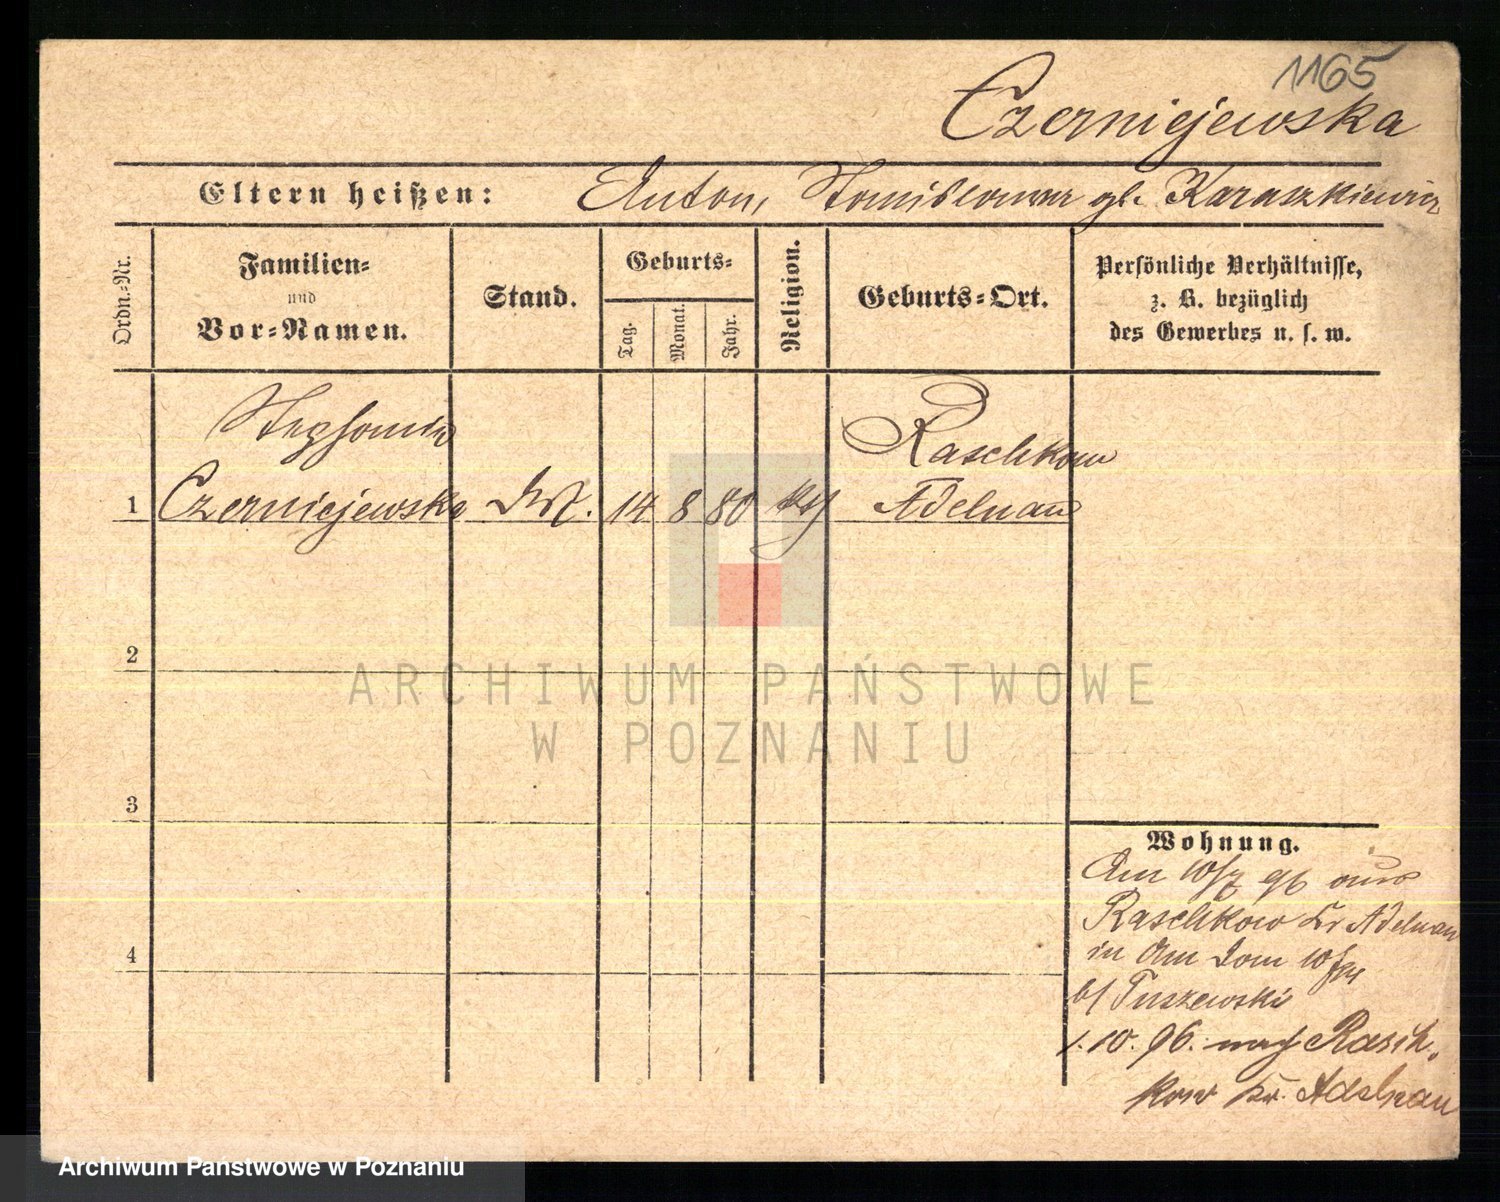 1165
Czerniejewska
Eltern heißen: Anton, Stanislawa gb. Karaszkiewicz
Ordn.-Nr.
Familien-
und
Vor-Namen.
Stand.
Geburts-
Tag.
Monat.
Jahr.
Religion.
Geburts-Ort.
Persönliche Verhältnisse,
z. B. bezüglich
des Gewerbes u. s. w.
Stephania
Raschkow
1 Czerniejewska 14 8 80 kth Adelnau
2
3
4
ARCHIWUM PAŃSTWOWE
W POZNANIU
Wohnung.
Am 10/7 96 aus
Raschkow Kr Adelnau
in Am Dom
b/ Tuszewski
1.10.96. nach Rasch-
kow Kr. Adelnau
Archiwum Państwowe w Poznaniu